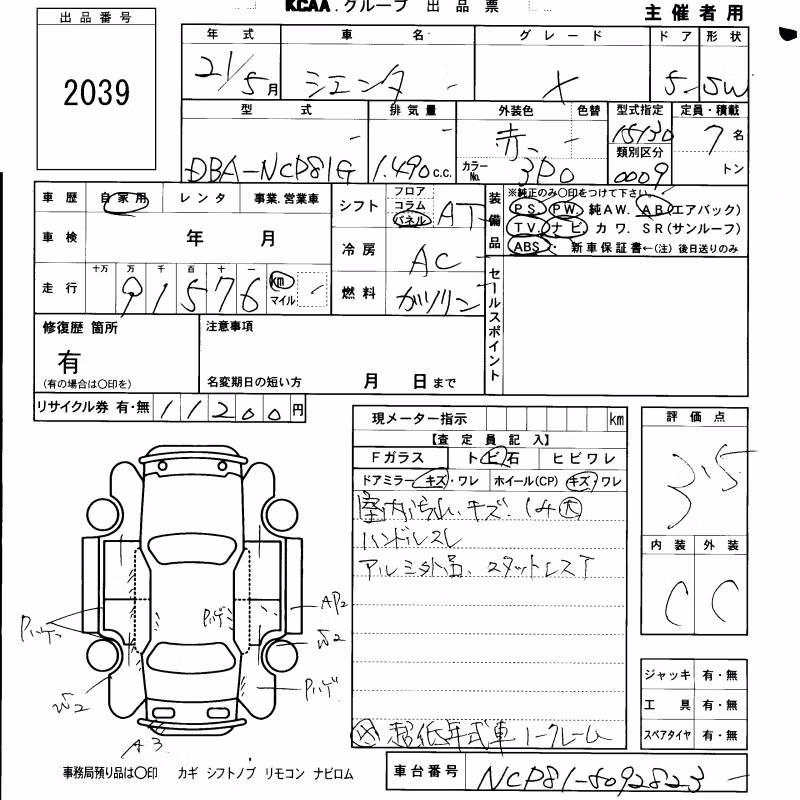 KCAA.グループ 出品票
主催者用
出品番号
2039
年式 車名 グレード ドア 形状
21/5月 シエンタ - X 5 5W
型式 排気量 外装色 色替 型式指定 定員・積載
DBA-NCP81G 1.490c.c. 赤 - 15130 7名
カラーNo. 3P0 類別区分 0009 トン
車歴 自家用 レンタ 事業.営業車
車検 年 月
走行 十万 万 千 百 十 一
91576 km マイル
シフト フロア コラム パネル AT
冷房 AC
燃料 ガソリン
装備品
※純正のみ〇印をつけて下さい。
PS. PW. 純AW. AB(エアバック)
TV. ナビ. カワ. SR(サンルーフ)
ABS・ 新車保証書←(注)後日送りのみ
セールスポイント
修復歴 箇所
有
(有の場合は〇印を)
注意事項
名変期日の短い方 月 日まで
リサイクル券 有・無 11200円
現メーター指示 km
【査定員記入】
Fガラス トビ石 ヒビワレ
ドアミラー キズ・ワレ ホイール(CP) キズ・ワレ
室内汚れ.キズ.
ハンドルスレ
アルミ外品、スタットレスT
超低年式車 ノークレーム
評価点
3.5
内装 外装
C C
ジャッキ 有・無
工具 有・無
スペアタイヤ 有・無
Pハゲ
Pハゲ
AP2
W2
Pハゲ
W2
A3
事務局預り品は〇印 カギ シフトノブ リモコン ナビロム
車台番号 NCP81-5092823